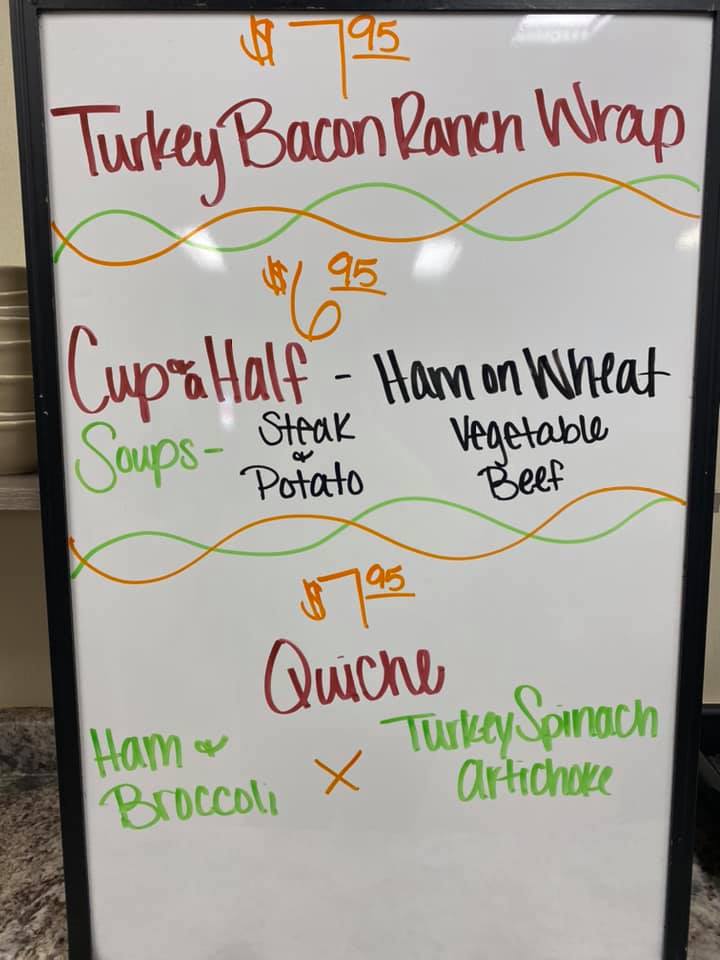 $7.95
Turkey Bacon Ranch Wrap
$6.95
Cup & a Half - Ham on Wheat
Soups - Steak & Potato Vegetable Beef
$7.95
Quiche
Ham & Broccoli x Turkey Spinach Artichoke